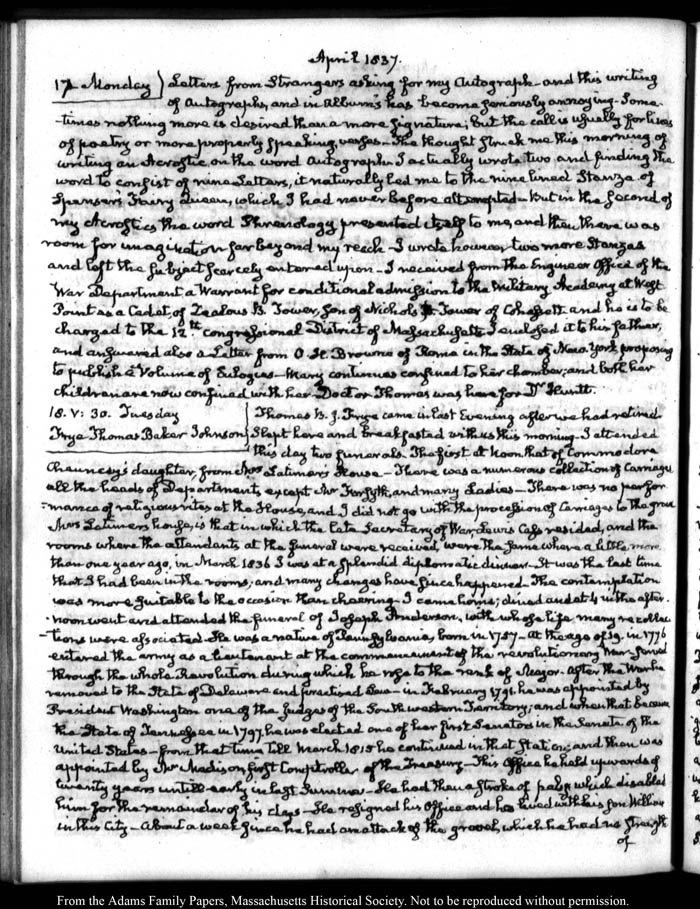 April 1837.
17. Monday) Letters from Strangers asking for my Autograph- and this writing
of Autographs, and in Albums has become seriously annoying- Some-
times nothing more is desired than a mere signature; but the call is usually for lines
of poetry or more properly speaking, verses- The thought struck me this morning of
writing an Acrostic on the word Autograph. I actually wrote two and finding the
word to consist of nine Letters, it naturally led me to the nine lined Stanza of
Spenser's Fairy Queen, which I had never before attempted- but in the second of
my Acrostics the word Phrenology presented itself to me, and then there was
room for imagination far beyond my reach- I wrote however two more Stanzas
and left the subject scarcely entered upon- I received from the Engineer Office of the
War Department a Warrant for conditional admission to the Military Academy at West
Point as a Cadet, of Zealous B. Tower, son of Nichols Tower of Cohassett and he is to be
charged to the 12th Congressional District of Massachusetts I enclosed it to his father,
and answered also a Letter from O. St. Browne of Rome in the State of New York proposing
to publish a Volume of Eulogies- Mary continues confined to her chamber; and both her
children are now confined with her. Doctor Thomas was here for Dr. Huntt.
18. V: 30. Tuesday
Frye Thomas Baker Johnson
Thomas B. J. Frye came in last Evening after we had retired
Slept here and breakfasted with us this morning. I attended
this day two funerals. The first at Noon, that of Commodore
Chauncey's daughter, from Mrs Latimer's House- There was a numerous collection of Carriages
all the heads of Departments, except Mr Forsyth, and many Ladies- There was no perfor-
mance of religious rites at the House, and I did not go with the procession of Carriages to the grave
Mrs Latimer's house, is that in which the late Secretary of War, Lewis Cass resided, and the
rooms where the attendants at the funeral were received, were the same where a little more
than one year ago, in March 1836 I was at a splendid diplomatic dinner- It was the last time
that I had been in the rooms, and many changes have since happened. The contemplation
was more suitable to the occasion than cheering- I came home; dined and at 4 in the after-
noon went and attended the funeral of Joseph Anderson, with whose life many recollec-
tions were associated- He was a native of Pennsylvania, born in 1757- At the age of 19. in 1776
entered the army as a lieutenant at the commencement of the revolutionary War- served
through the whole Revolution during which he rose to the rank of Major. After the War he
removed to the State of Delaware and practised Law- in February 1791. he was appointed by
President Washington one of the Judges of the South western Territory; and when that became
the State of Tennessee in 1797 he was elected one of her first Senators in the Senate of the
United States- from that time till March 1815 he continued in that Station; and then was
appointed by Mr Madison, first Comptroller of the Treasury- This Office he held upwards of
twenty years untill early in last Summer- He had then a stroke of palsy which disabled
him for the remainder of his days- He resigned his Office and has lived with his son William
in this City- About a week since he had an attack of the gravel, which he had no strength
of
From the Adams Family Papers, Massachusetts Historical Society. Not to be reproduced without permission.